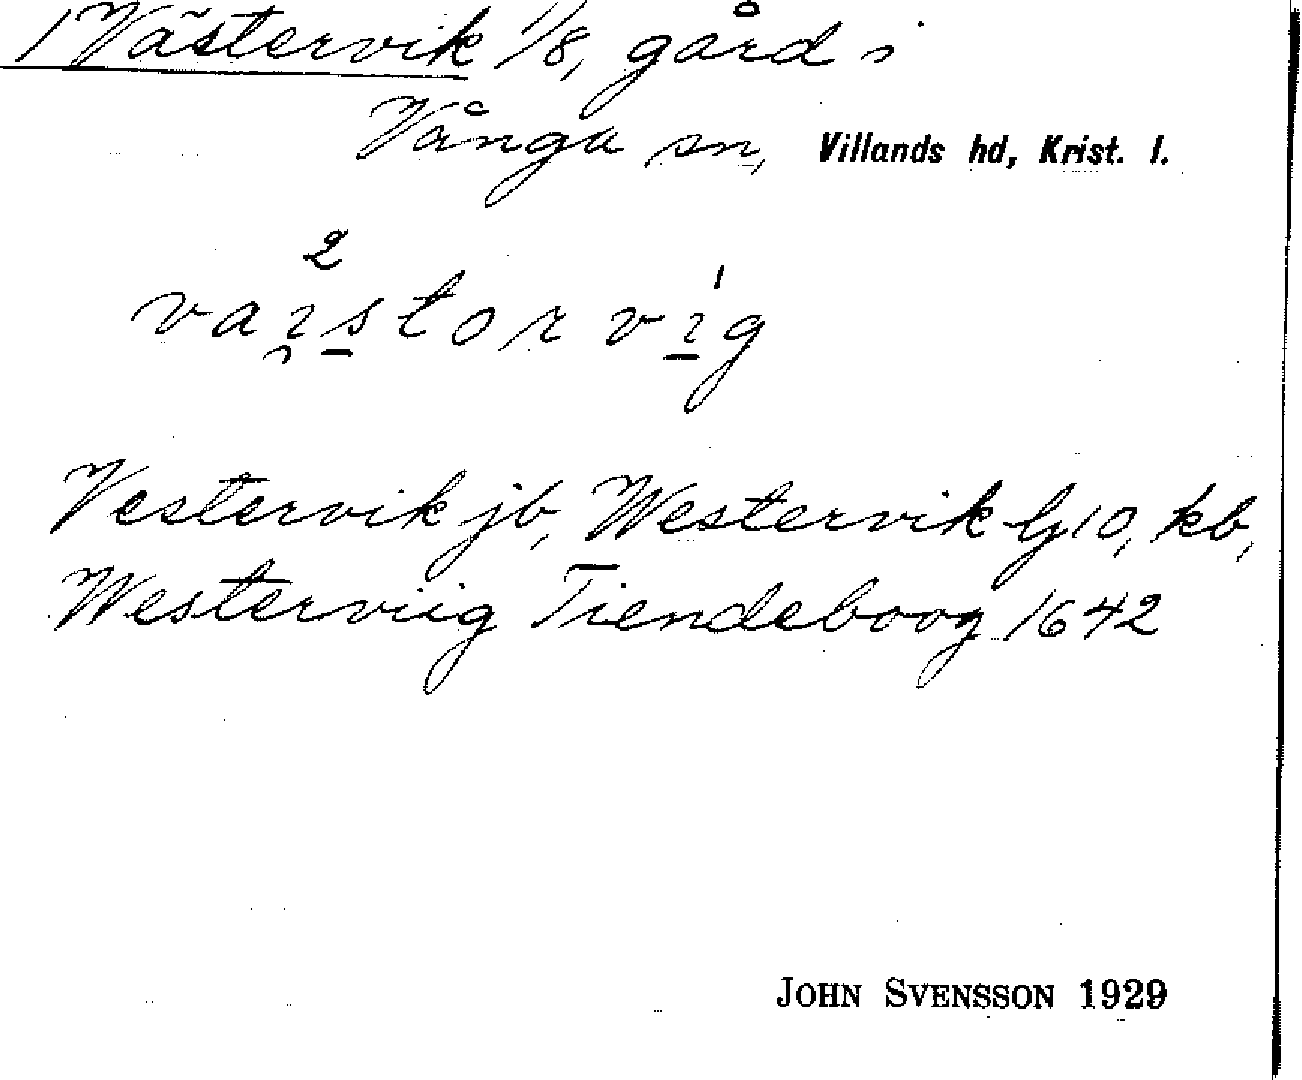 1 Västervik 1/8, gård i
Vånga sn, Villands hd, Krist. l.
Vestervik jb, Westervik Gj 10, kb,
Westerviig Tiendeboog 1642
JOHN SVENSSON 1929